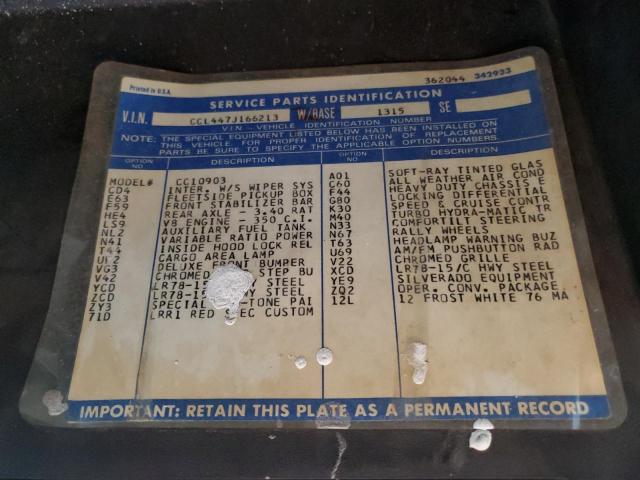 Printed in U.S.A.
362044 342933
SERVICE PARTS IDENTIFICATION
V.I.N. CCL447J166213 W/BASE 1315 SE
V.I.N - VEHICLE IDENTIFICATION NUMBER
NOTE: THE SPECIAL EQUIPMENT LISTED BELOW HAS BEEN INSTALLED ON
THIS VEHICLE. FOR PROPER IDENTIFICATION OF REPLACEMENT
PARTS BE SURE TO SPECIFY THE APPLICABLE OPTION NUMBERS.
OPTION NO DESCRIPTION OPTION NO. DESCRIPTION
MODEL# CC10903
CD4 INTER. W/S WIPER SYS
E63 FLEETSIDE PICKUP BOX
F59 FRONT STABILIZER BAR
HE4 REAR AXLE - 3.40 RAT
LS9 V8 ENGINE - 350 C.I.
NL2 AUXILIARY FUEL TANK
N41 VARIABLE RATIO POWER
T44 INSIDE HOOD LOCK REL
UF2 CARGO AREA LAMP
VG3 DELUXE FRONT BUMPER
V42 CHROMED STEP BU
YCD LR78-15 STEEL
ZCD LR78-15 HWY STEEL
ZY3 SPECIAL -TONE PAI
71D LRR1 RED SPEC CUSTOM
A01 SOFT-RAY TINTED GLAS
C60 ALL WEATHER AIR COND
F44 HEAVY DUTY CHASSIS E
G80 LOCKING DIFFERENTIAL
K30 SPEED & CRUISE CONTR
M40 TURBO HYDRA-MATIC TR
N33 COMFORTILT STEERING
N67 RALLY WHEELS
T63 HEADLAMP WARNING BUZ
U69 AM/FM PUSHBUTTON RAD
V22 CHROMED GRILLE
XCD LR78-15/C HWY STEEL
YE9 SILVERADO EQUIPMENT
ZQ2 OPER. CONV. PACKAGE
12L 12 FROST WHITE 76 MA
IMPORTANT: RETAIN THIS PLATE AS A PERMANENT RECORD